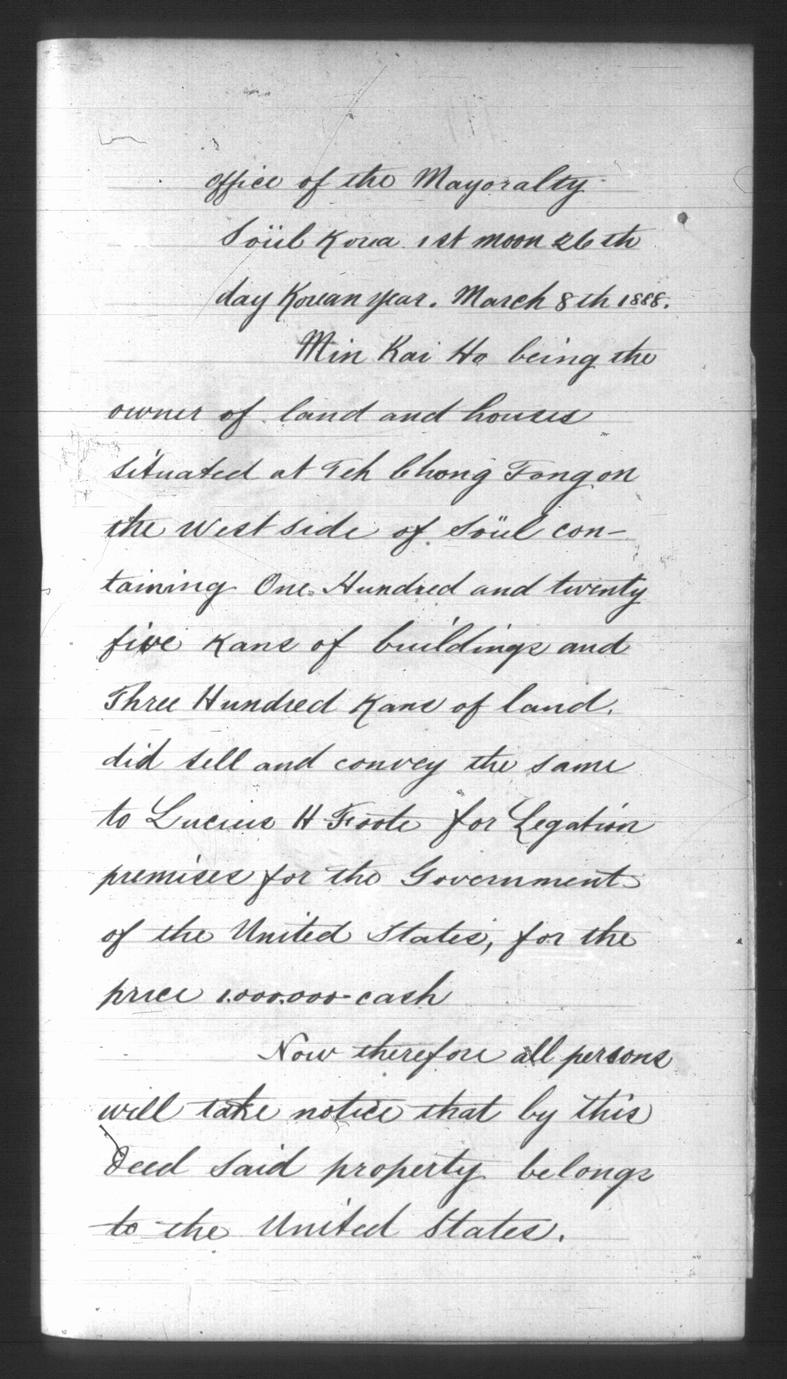 Office of the Mayoralty
Söül Korea 1st moon 26th
day Korean year. March 8th 1888.
Min Kai Ho being the
owner of land and houses
situated at Teh Chong Tong on
the West side of Söül con-
taining One Hundred and twenty
five Kans of buildings and
Three Hundred Kans of land.
did sell and convey the same
to Lucius H Foote for Legation
premises for the Government
of the United States, for the
price 1.000.000 cash
Now therefore all persons
will take notice that by this
Deed said property belongs
to the United States.